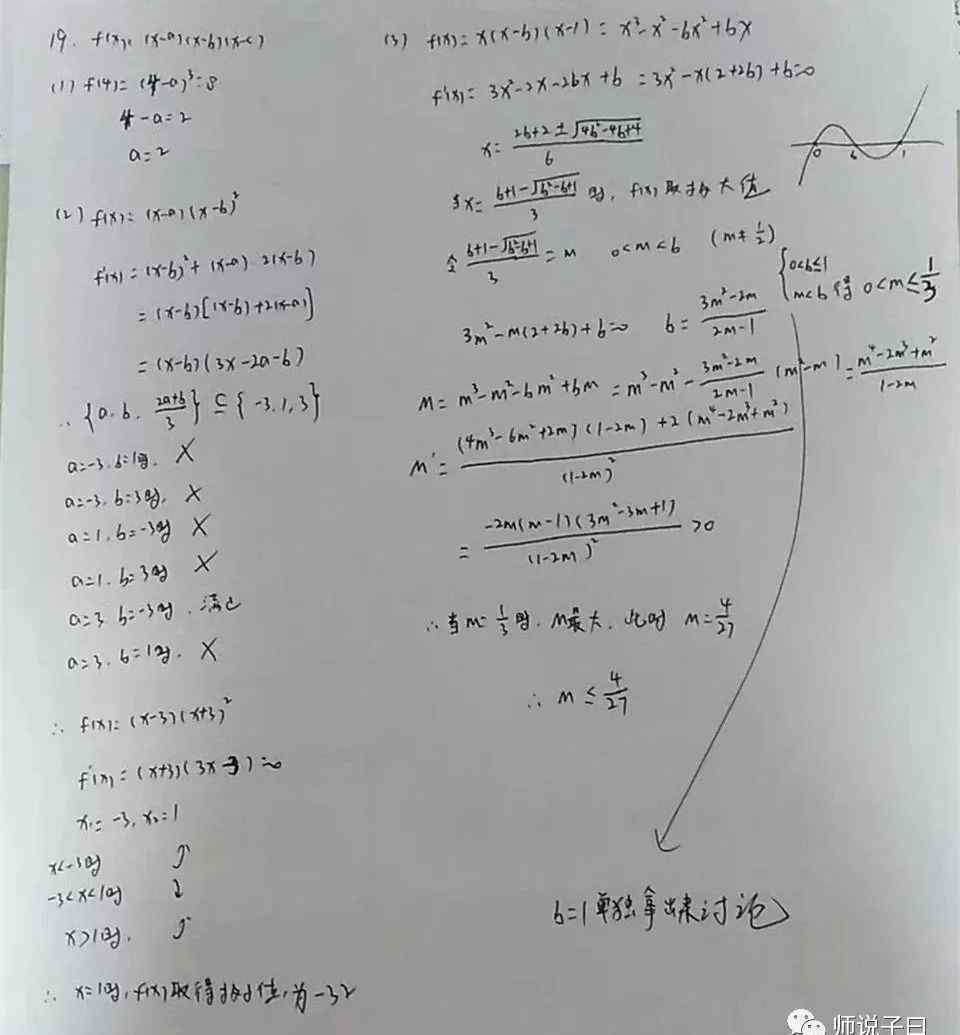 19. f(x)=(x-a)(x-b)(x-c)
(1) f(4)=(4-a)³=8
4-a=2
a=2
(2) f(x)=(x-a)(x-b)²
f'(x)=(x-b)²+(x-a)·2(x-b)
=(x-b)[(x-b)+2(x-a)]
=(x-b)(3x-2a-b)
∴ {a, b, (2a+b)/3} ⊆ {-3, 1, 3}
a=-3, b=1时, ×
a=-3, b=3时, ×
a=1, b=-3时 ×
a=1, b=3时 ×
a=3, b=-3时, 满足
a=3, b=1时, ×
∴ f(x)=(x-3)(x+3)²
f'(x)=(x+3)(3x-3)=0
x₁=-3, x₂=1
x<-3时 ↗
-3<x<1时 ↓
x>1时, ↗
∴ x=1时, f(x)取得极小值, 为-32
(3) f(x)=x(x-b)(x-1)=x³-x²-bx²+bx
f'(x)=3x²-2x-2bx+b=3x²-x(2+2b)+b=0
x=(2b+2±√(4b²-4b+4))/6
0 b 1
当x=(b+1-√(b²-b+1))/3时, f(x)取极大值
令(b+1-√(b²-b+1))/3=m 0<m<b (m≠1/2)
{0<b≤1
m<b 得 0<m≤1/3
3m²-m(2+2b)+b=0 b=(3m²-2m)/(2m-1)
M=m³-m²-bm²+bm=m³-m²-(3m²-2m)/(2m-1)(m²-m)=(m⁴-2m³+m²)/(1-2m)
M'=((4m³-6m²+2m)(1-2m)+2(m⁴-2m³+m²))/(1-2m)²
=(-2m(m-1)(3m²-3m+1))/(1-2m)²>0
∴当m=1/3时, M最大, 此时 M=4/27
∴ M≤4/27
b=1单独拿出来讨论
师说子曰